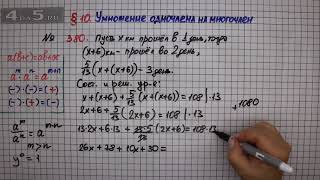 § 10. Умножение одночлена на многочлен
№ 380. Пусть x км прошёл в 1 день, тогда
(x+6) км - прошёл во 2 день,
5/13 (x+(x+6)) - 3 день.
Сост. и реш. ур-е:
x+(x+6)+ 5/13 (x+(x+6)) = 108 | · 13
2x+6+ 5/13 (2x+6) = 108 | · 13
13·2x+6·13+ (2x+6) = 108·13
26x+78+10x+30=
a(b+c)=ab+ac
(-)·(-)=(+)
(-)·(+)=(-)
y⁰=1
1080